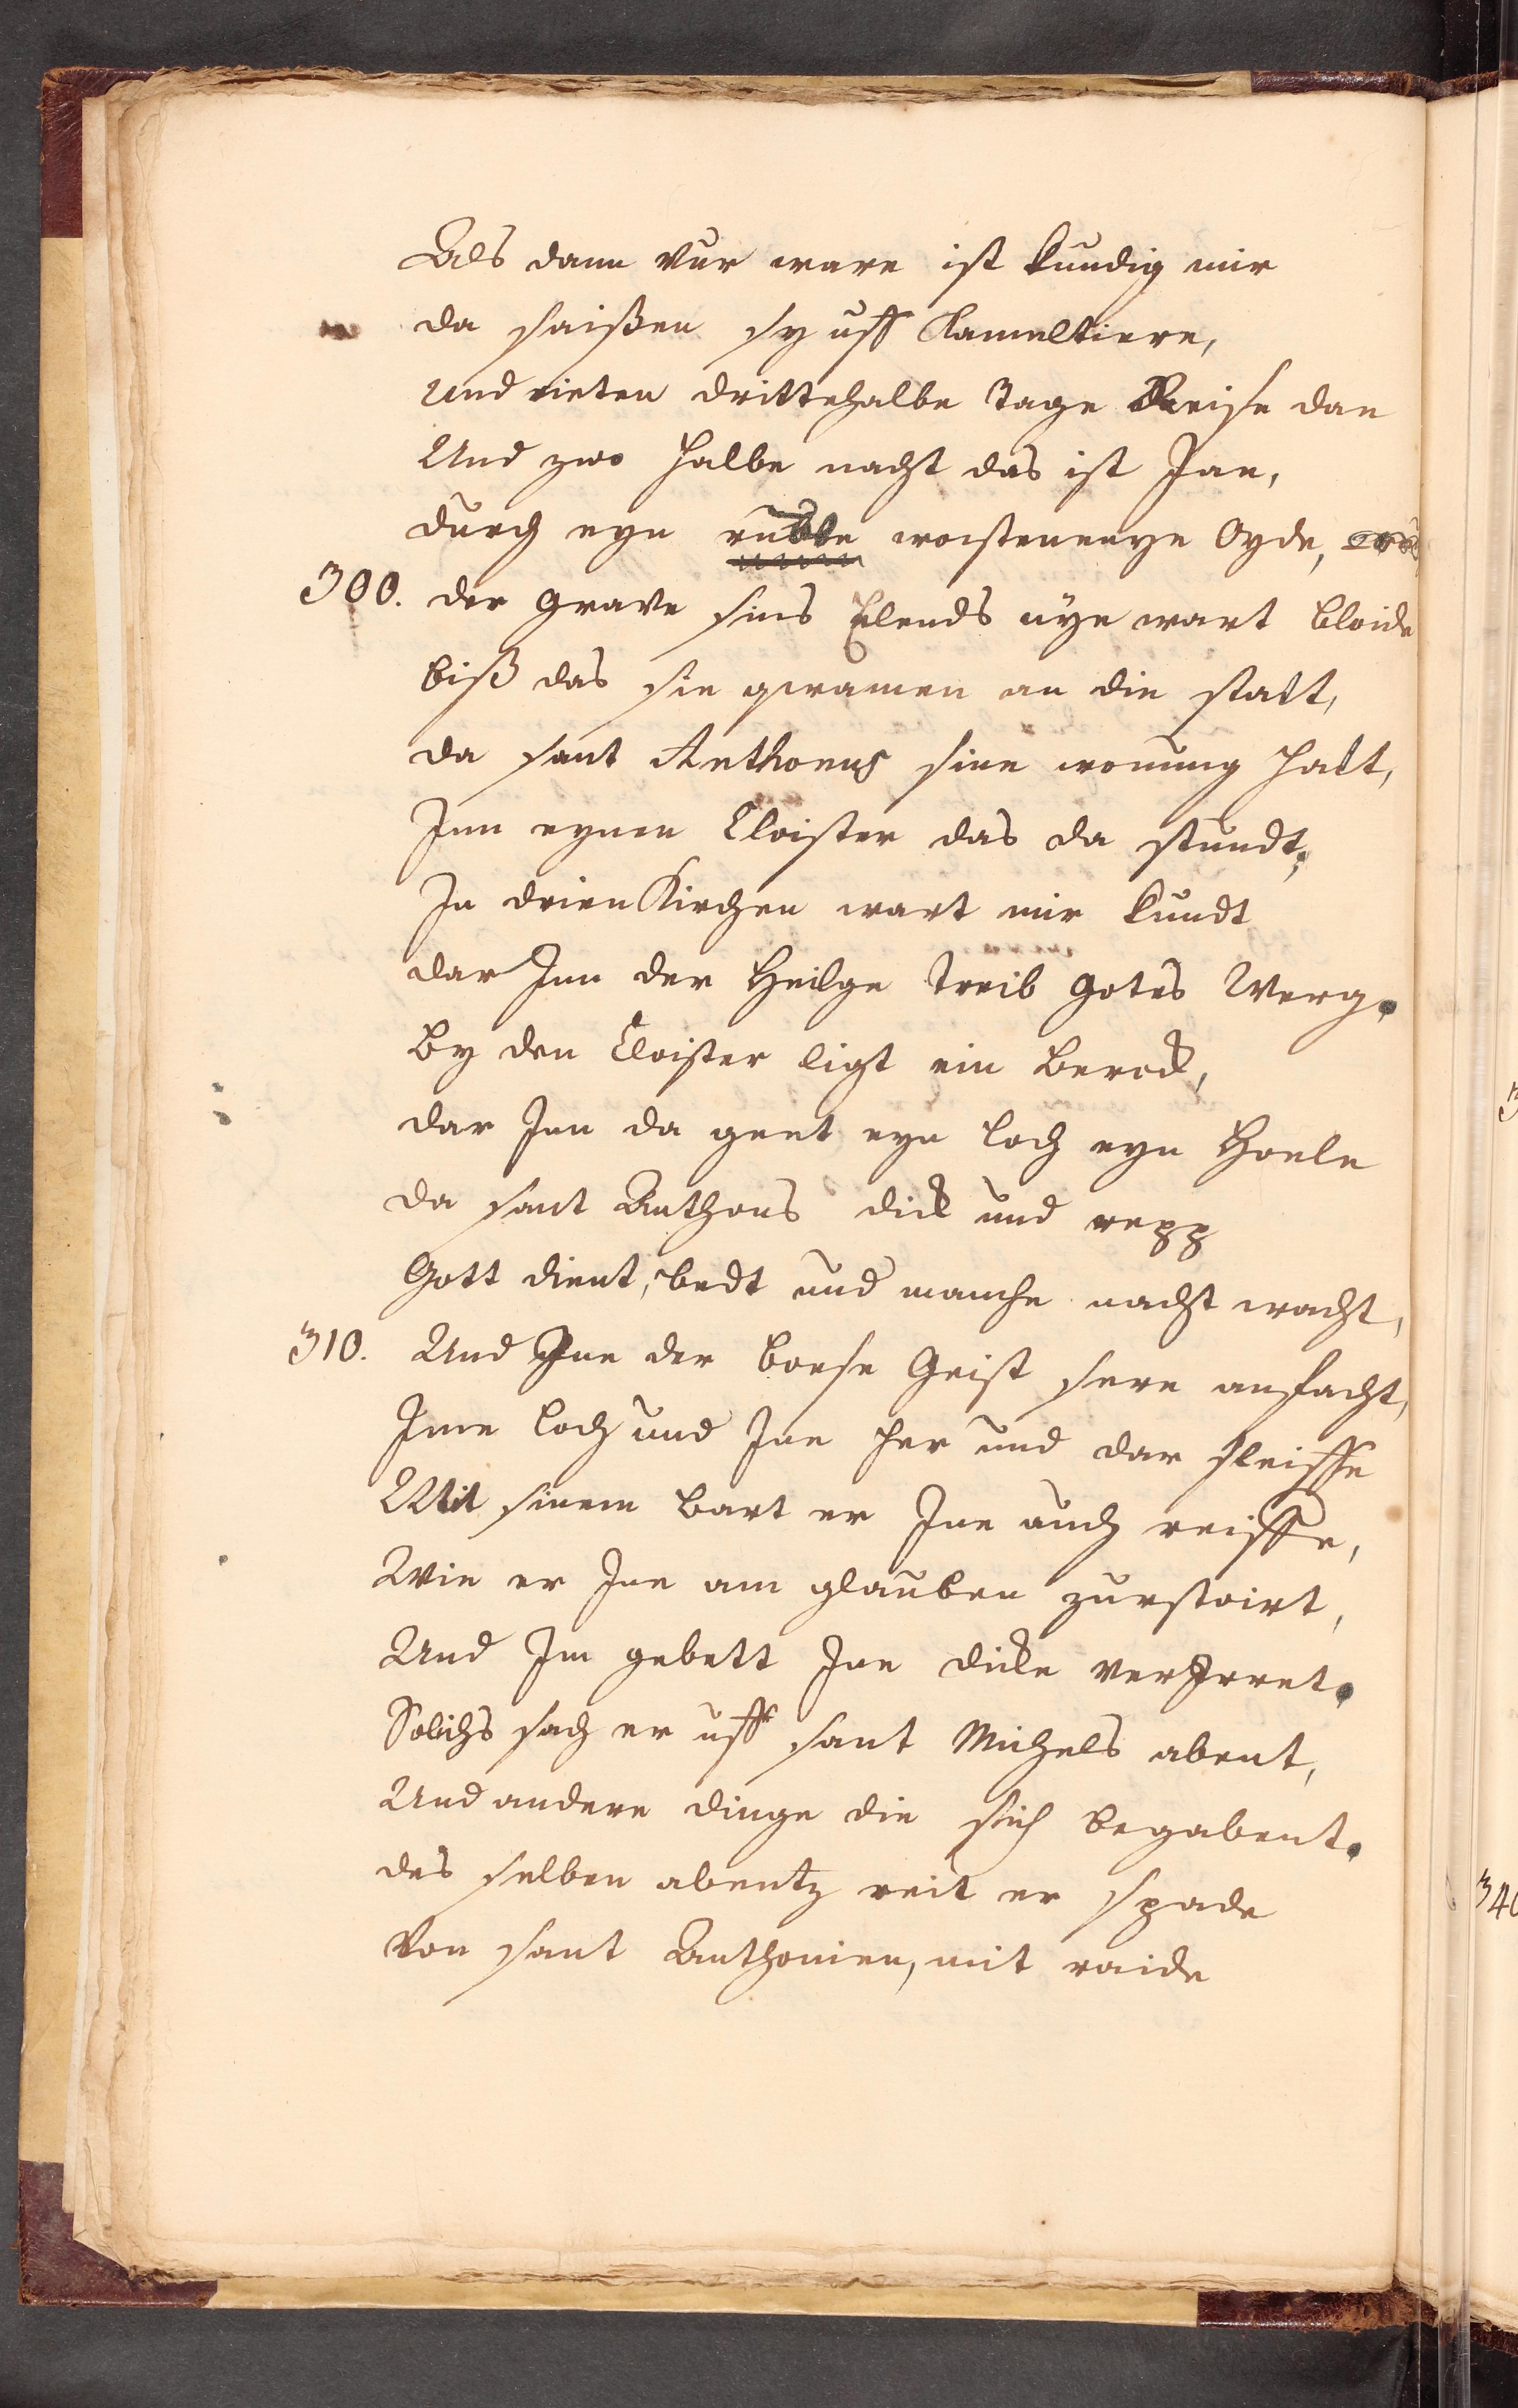 Als dann vur ware ist kundig mir
da saißen sy uff Kameltiere,
und rieten drittehalbe Tage Reise dan
Und zwo halbe nacht das ist Jae,
durch eyn woistenenye Oyde,
300. der Grave sins Elends nÿe wart bloide
biß das sie qwamen an die statt,
da sant Anthoeng sine wonung hatt,
Inn eynen Cloister das da stundt,
In drien Kirchen wart mir kundt
dar Inn der Heilge treib gotes Werg.
By den Cloister ligt ein Berck,
dar Inn da geet eyn loch eyn Hoele
da sant Anthons dick und
Gott dient, bedt und manche nacht wacht,
310. Und Ine der boese Geist sere anfacht,
Jme loch und Ine her und dar sleiffe
Mit sinem bart er Ine auch reiffe,
Wie er Ine am glauben zurstoirt,
Und Im gebett Ine dicke verIrret.
Solichs sach er uff sant Michels abent,
Und andere dinge die sich begabent.
des selben abentz reit er spade
Von sant Anthonien, mit raide
340